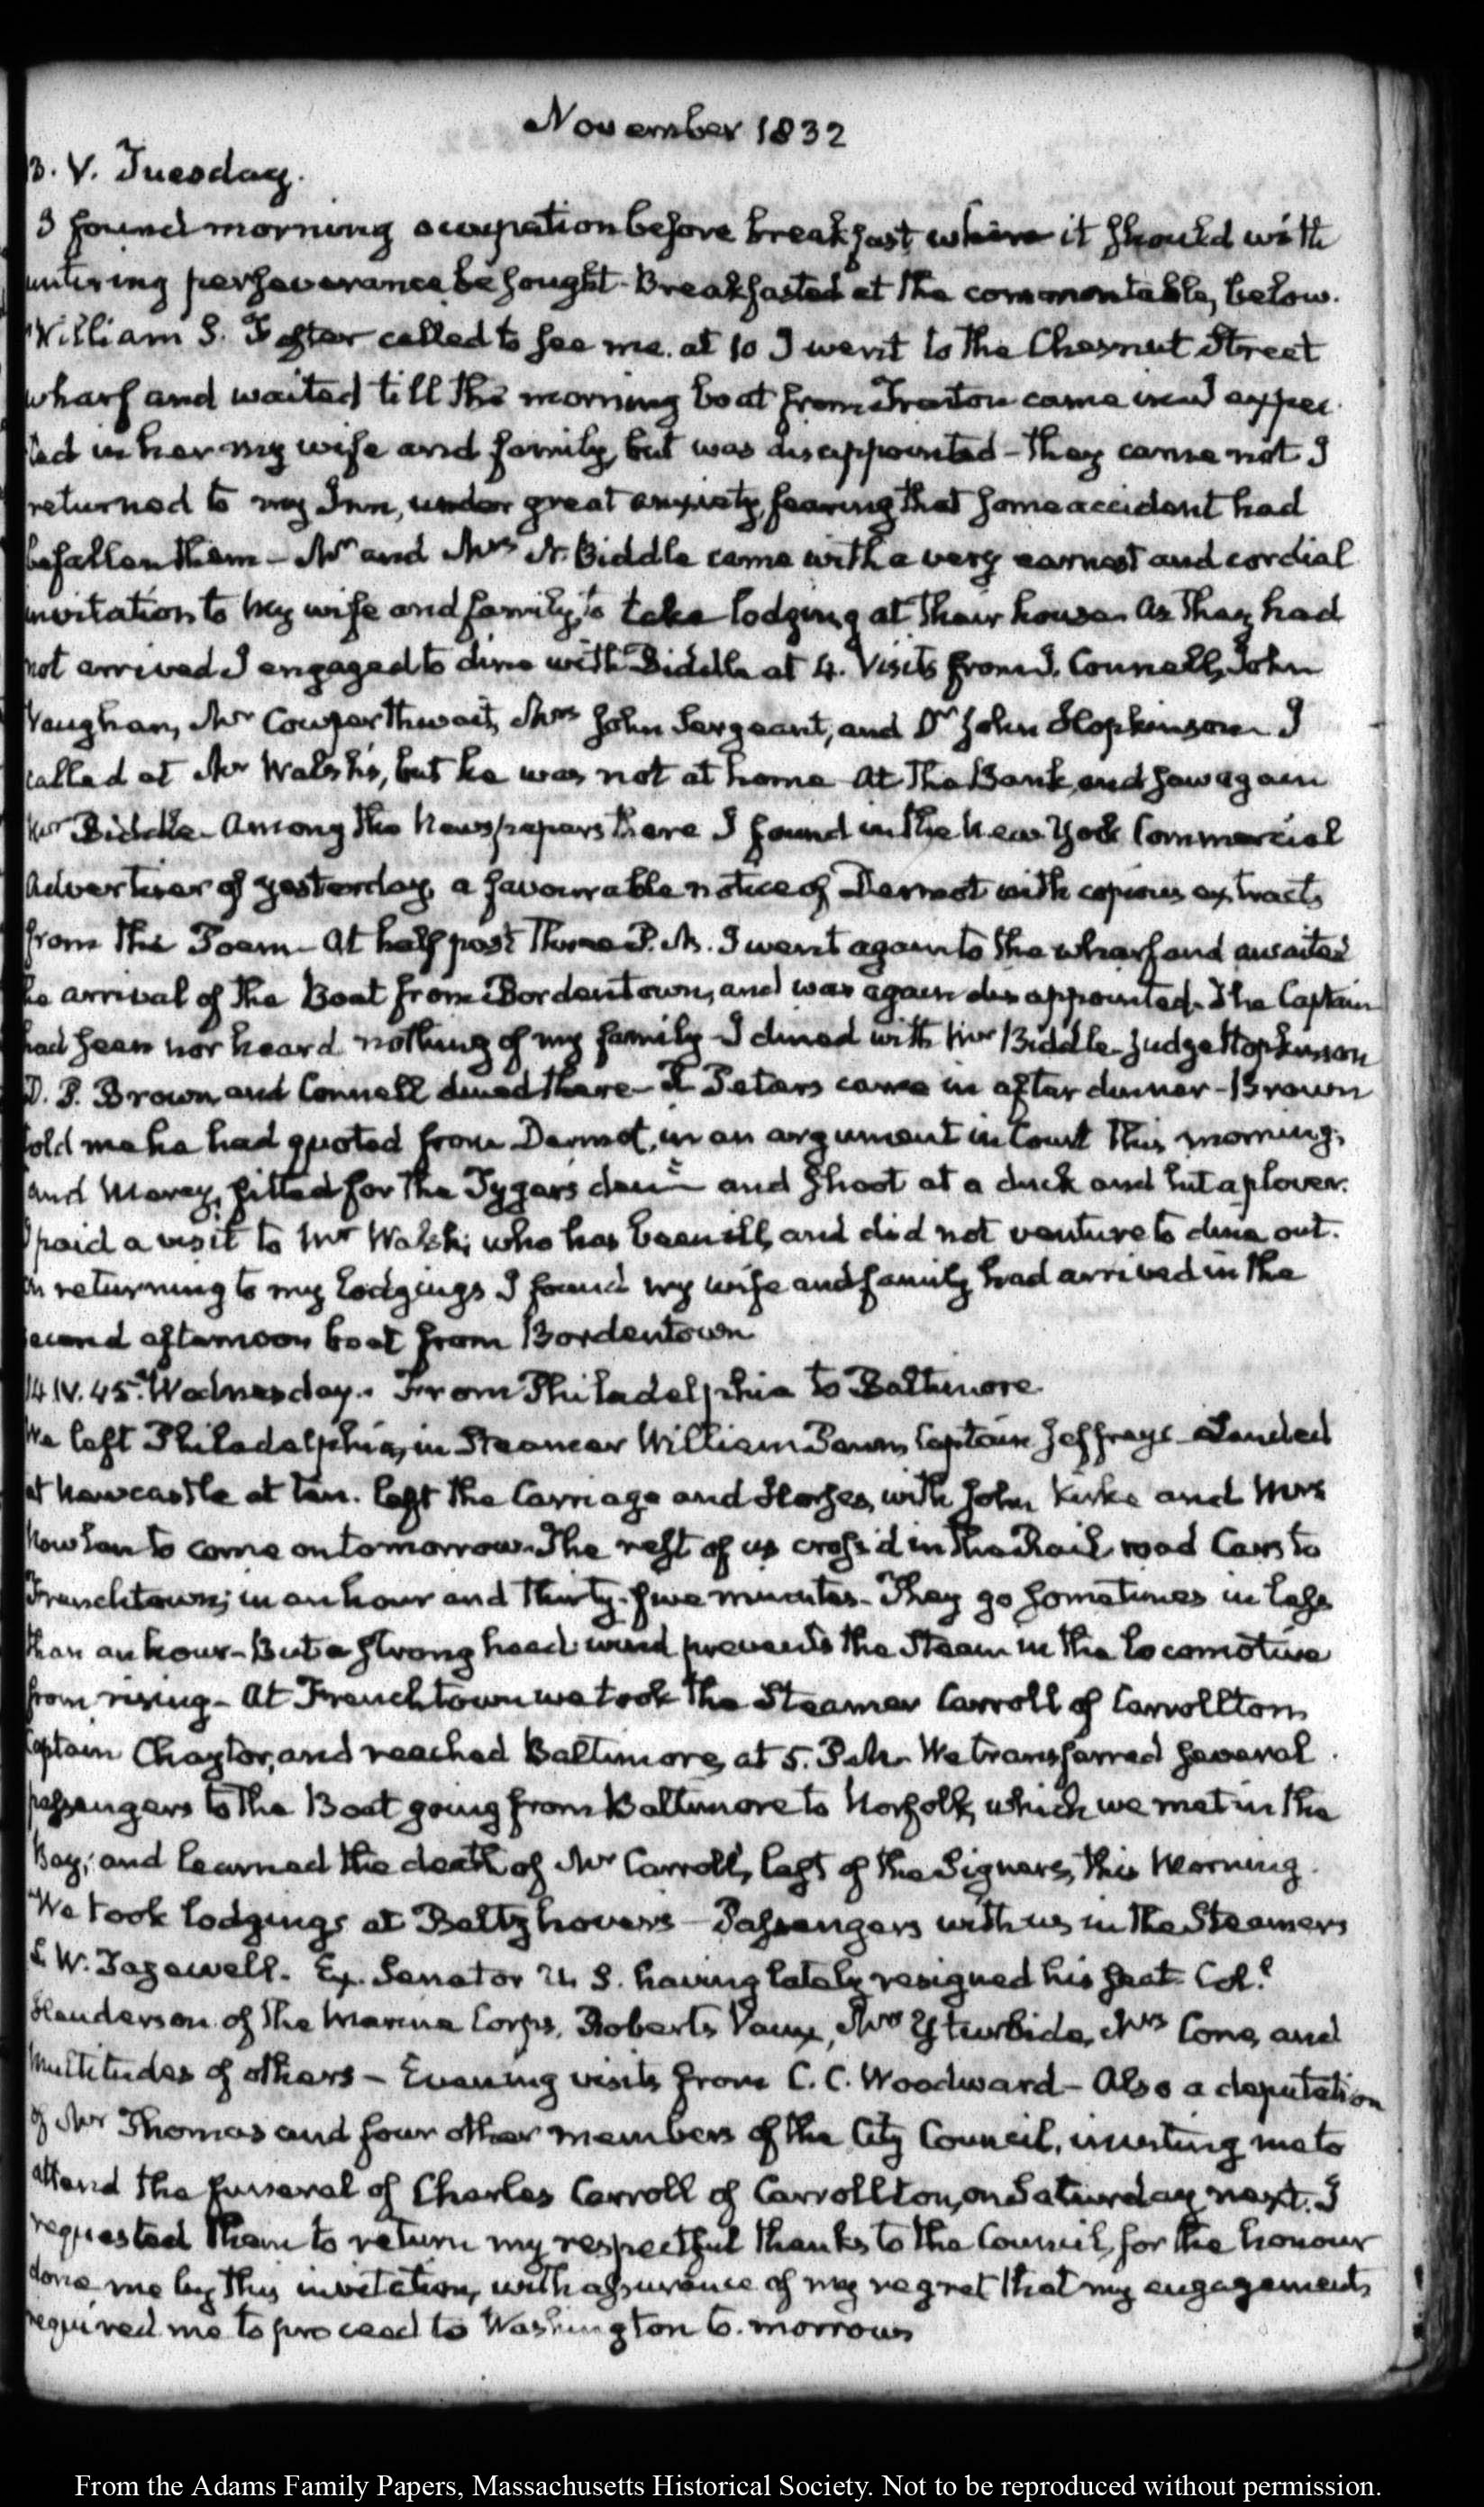 November 1832
13. V. Tuesday.
I found morning occupation before breakfast where it should with
untiring perseverance be sought. Breakfasted at the common table, below.
William S. Foster called to see me. at 10 I went to the Chesnut Street
wharf and waited till the morning boat from Trenton came in. I expec-
ted in her my wife and family, but was disappointed – they came not I
returned to my Inn, under great anxiety, fearing that some accident had
befallen them – Mr and Mrs N. Biddle came with a very earnest and cordial
invitation to my wife and family, to take lodging at their house. As they had
not arrived I engaged to dine with Biddle at 4. Visits from J. Connell, John
Vaughan, Mr Cowperthwait, Mrs John Sergeant, and Dr John Hopkinson. I
called at Mr Walsh's, but he was not at home. At the Bank, and saw again
Mr Biddle. Among the Newspapers there I found in the New York Commercial
Advertiser of yesterday, a favourable notice of Dermot with copious extracts
from the Poem – At half past three P.M. I went again to the wharf and awaited
the arrival of the Boat from Bordentown, and was again disappointed. The Captain
had seen nor heard nothing of my family – I dined with Mr Biddle. Judge Hopkinson
D. P. Brown, and Connell dined there – Peters came in after dinner – Brown
told me he had quoted from Dermot, in an argument in Court this morning,
and Mercy, fitted for the Tygar's and shoot at a duck and hit a plover.
I paid a visit to Mr Walsh; who has been ill, and did not venture to dine out.
On returning to my lodgings I found my wife and family had arrived in the
second afternoon boat from Bordentown
14. IV. 45. Wednesday. From Philadelphia to Baltimore.
We left Philadelphia, in Steamer William Penn, Captain Jeffrays – Landed
at Newcastle at ten. left the Carriage and Horses, with John Kirke and Mrs
Nowlan to come on tomorrow. The rest of us cross'd in the Rail road Cars to
Frenchtown; in an hour and thirty-five minutes. They go sometimes in less
than an hour – But a strong head wind prevents the steam in the locomotive
from rising – At Frenchtown we took the Steamer Carroll of Carrollton,
Captain Chaytor, and reached Baltimore, at 5. P.M. We transferred several
passengers to the Boat going from Baltimore to Norfolk, which we met in the
Bay; and learned the death of Mr Carroll, last of the Signers, this Morning.
We took lodgings at Beltzhoover's – Passengers with us in the Steamers
L. W. Tazewell. Ex. Senator U. S. having lately resigned his seat. Col.l
Henderson of the Marine Corps. Roberts Vaux, Mrs Yturbide, Mrs Cone, and
Multitudes of others – Evening visits from C. C. Woodward – Also a deputation
of Mr Thomas and four other members of the City Council, inviting me to
attend the funeral of Charles Carroll of Carrollton, on Saturday next. I
requested them to return my respectful thanks to the Council, for the honour
done me by this invitation, with assurance of my regret that my engagements
required me to proceed to Washington to-morrow
From the Adams Family Papers, Massachusetts Historical Society. Not to be reproduced without permission.